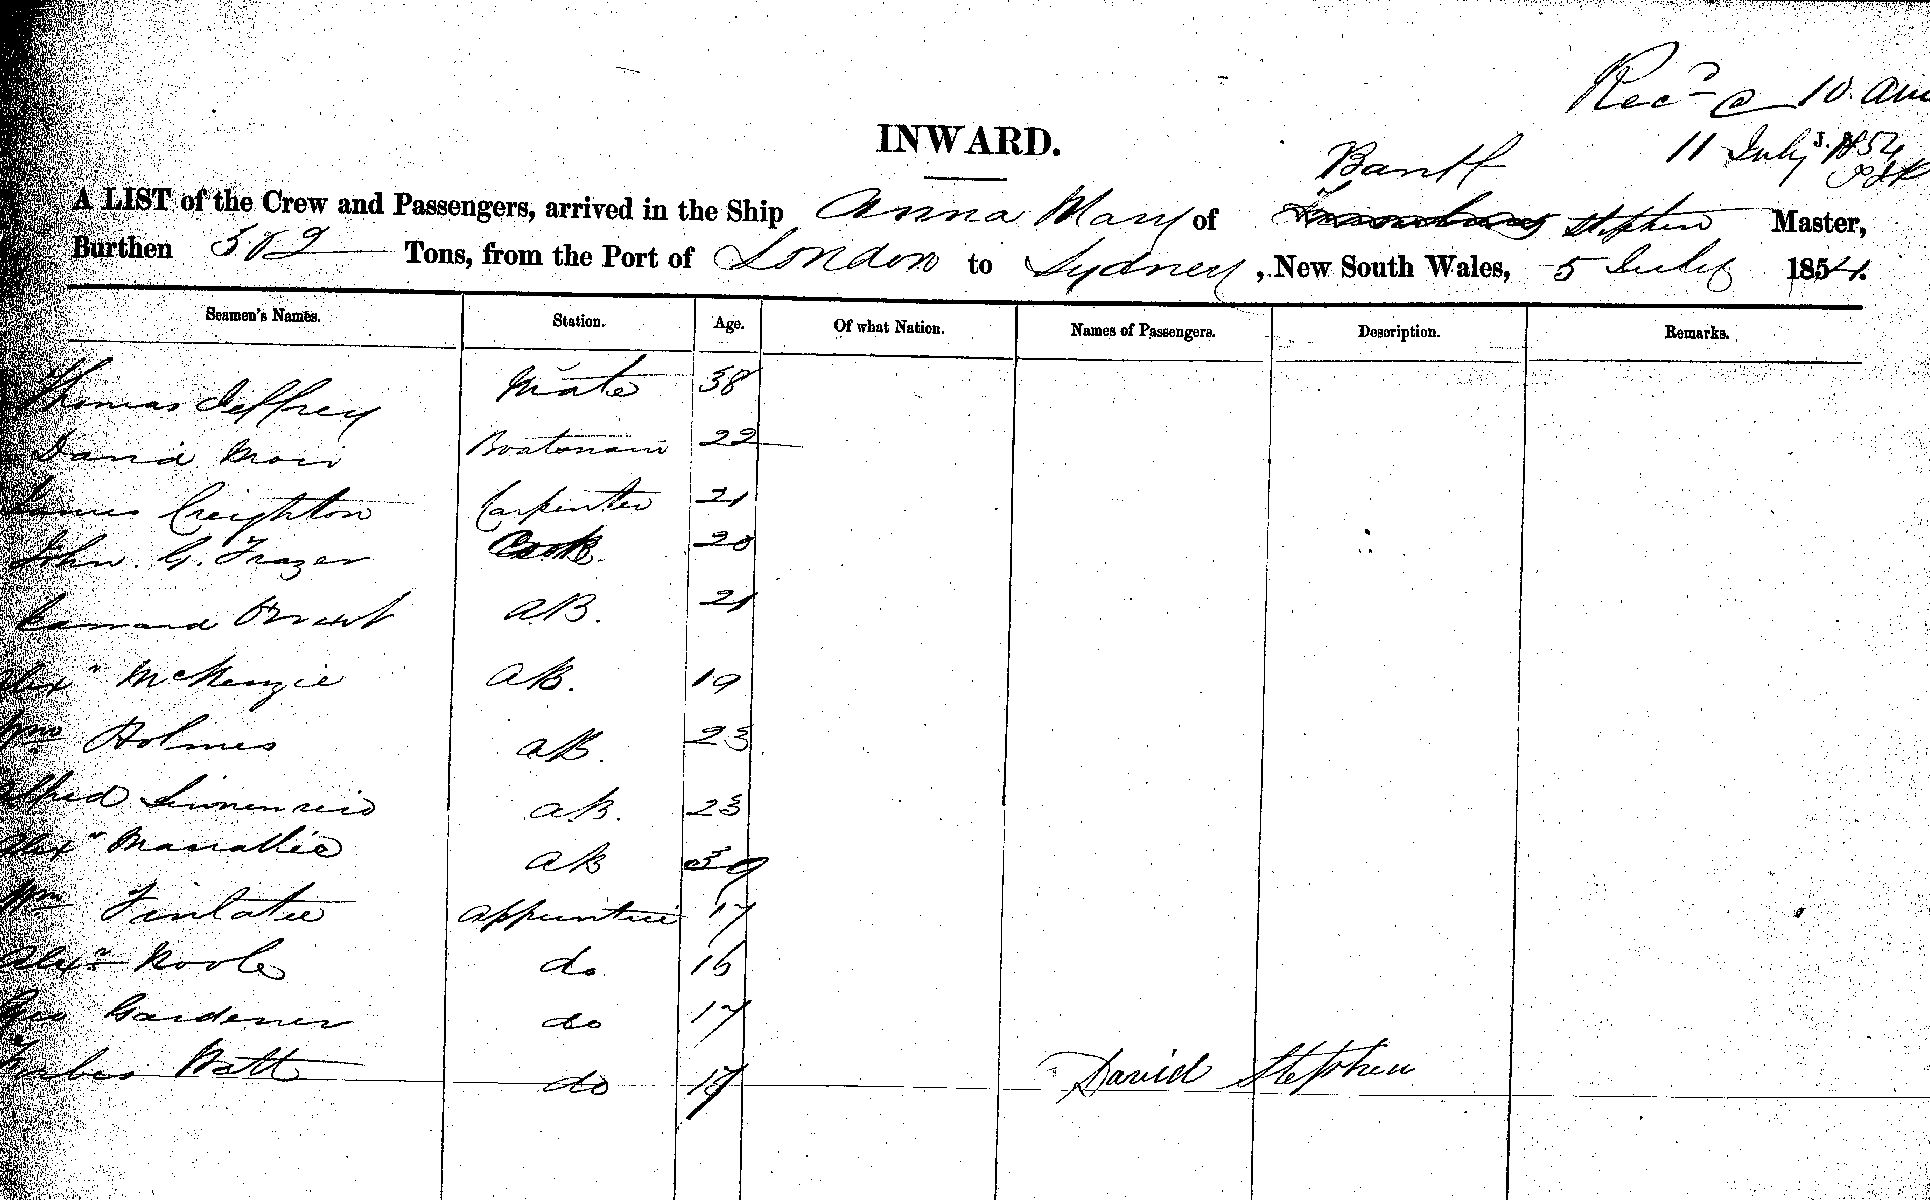 Recd @ 10 am
11 July 1854
INWARD.
Banff
A LIST of the Crew and Passengers, arrived in the Ship Anna Mary of Stephen Master,
Burthen Tons, from the Port of London to Sydney, New South Wales, 5 July 1854.
Seamen's Names. Station. Age. Of what Nation. Names of Passengers. Description. Remarks.
Thomas Jeffrey Mate 38
David Moir Boatswain 22
James Creighton Carpenter 21
John G. Frazer Cook 20
AB. 21
Alexr McKenzie AB. 19
Wm Holmes AB. 23
Alfred AB. 23
Alexr AB 39
Wm Finlater apprentice 17
Alexr do 16
Geo Gardener do 17
Forbes Watt do 17 David Stephen